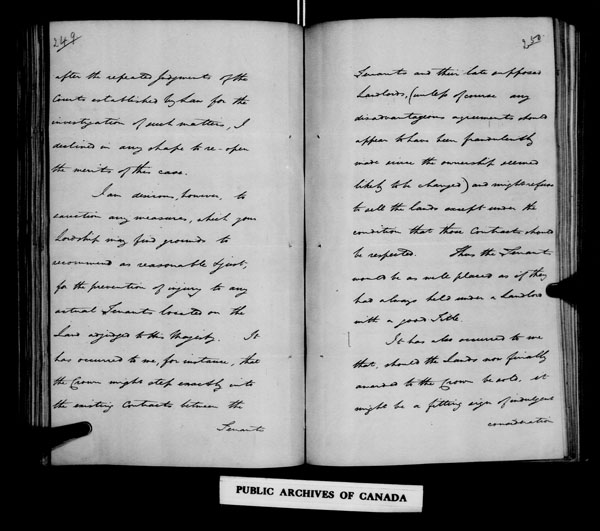 249
after the repeated Judgments of the
Courts established by Law for the
investigation of such matters, I
declined in any shape to re-open
the merits of the case.
I am desirous, however, to
sanction any measures, which your
Lordship may find grounds to
recommend as reasonable & just,
for the prevention of injury to any
actual Tenants located on the
Land adjudged to Her Majesty. It
has occurred to me, for instance, that
the Crown might step exactly into
the existing Contracts between the
Tenants
250
Tenants and their late supposed
Landlords, (unless of course any
disadvantageous agreements should
appear to have been fraudulently
made since the ownership seemed
likely to be changed) and might refuse
to sell the lands except under the
condition that those Contracts should
be respected. Thus the Tenants
would be as well placed as if they
had always held under a Landlord
with a good Title
It has also occurred to me
that, should the Lands now finally
awarded to the Crown be sold, it
might be a fitting sign of indulgent
consideration
PUBLIC ARCHIVES OF CANADA